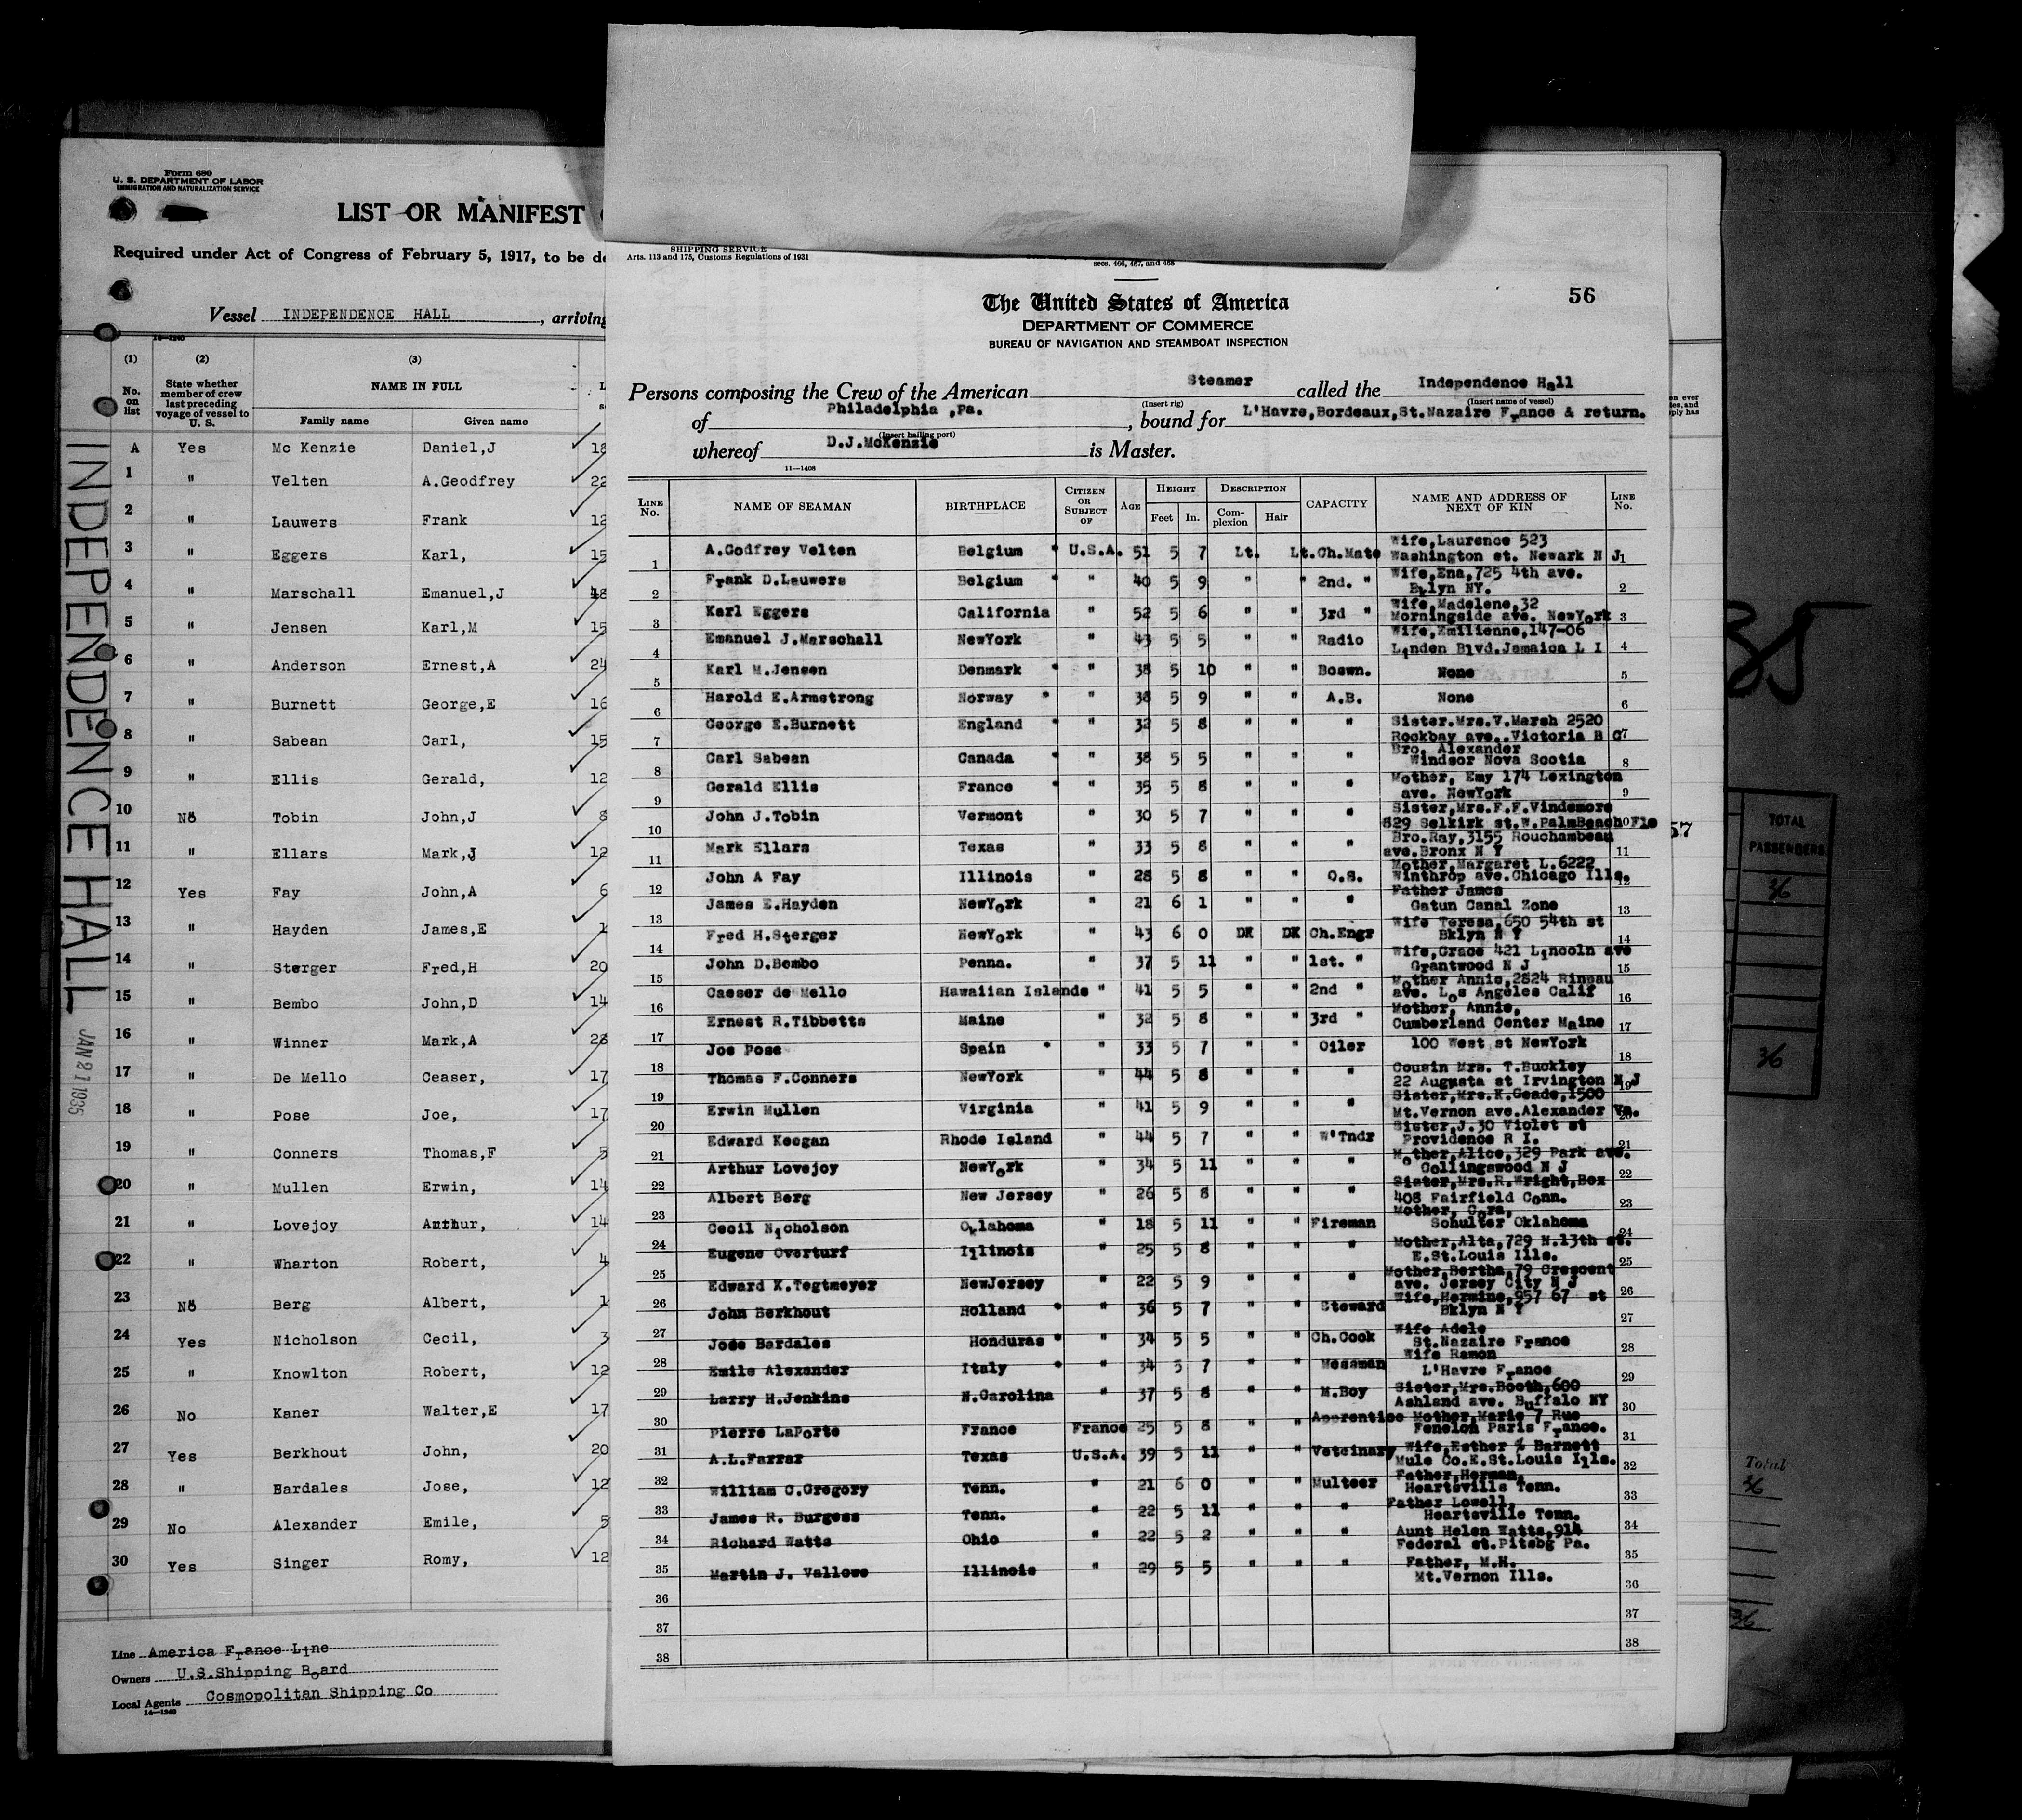 Form 680
U. S. DEPARTMENT OF LABOR
IMMIGRATION AND NATURALIZATION SERVICE
LIST OR MANIFEST
Required under Act of Congress of February 5, 1917, to be de
Vessel INDEPENDENCE HALL, arriving
14—1240
(1) (2) (3)
No. on list State whether member of crew last preceding voyage of vessel to U. S. NAME IN FULL
Family name Given name
A Yes Mc Kenzie Daniel,J 18
1 " Velten A.Geodfrey 22
2 " Lauwers Frank 12
3 " Eggers Karl, 15
4 " Marschall Emanuel,J 18
5 " Jensen Karl,M 15
6 " Anderson Ernest,A 24
7 " Burnett George,E 16
8 " Sabean Carl, 15
9 " Ellis Gerald, 12
10 No Tobin John,J 8
11 " Ellars Mark,J 12
12 Yes Fay John,A 6
13 " Hayden James,E 1
14 " Sterger Fred,H 20
15 " Bembo John,D 14
16 " Winner Mark,A 28
17 " De Mello Ceaser, 17
18 " Pose Joe, 17
19 " Conners Thomas,F 5
20 " Mullen Erwin, 14
21 " Lovejoy Arthur, 14
22 " Wharton Robert, 4
23 No Berg Albert, 1
24 Yes Nicholson Cecil, 3
25 " Knowlton Robert, 12
26 No Kaner Walter,E 17
27 Yes Berkhout John, 20
28 " Bardales Jose, 12
29 No Alexander Emile, 5
30 Yes Singer Romy, 12
Line America France Line
Owners U.S.Shipping Board
Local Agents Cosmopolitan Shipping Co
14—1240
INDEPENDENCE HALL
JAN 21 1935
SHIPPING SERVICE
Arts. 113 and 175, Customs Regulations of 1931
secs. 466, 467, and 468
56
The United States of America
DEPARTMENT OF COMMERCE
BUREAU OF NAVIGATION AND STEAMBOAT INSPECTION
Persons composing the Crew of the American Steamer called the Independence Hall
(Insert rig) (Insert name of vessel)
of Philadelphia ,Pa. , bound for L'Havre,Bordeaux,St.Nazaire France & return.
(Insert hailing port)
whereof D.J.McKenzie is Master.
11—1408
LINE No. NAME OF SEAMAN BIRTHPLACE CITIZEN OR SUBJECT OF AGE HEIGHT DESCRIPTION CAPACITY NAME AND ADDRESS OF NEXT OF KIN LINE No.
Feet In. Complexion Hair
1 A.Godfrey Velten Belgium * U.S.A. 51 5 7 Lt. Lt. Ch.Mate Wife,Laurence 523 Washington st. Newark N J 1
2 Frank D.Lauwers Belgium * " 40 5 9 " " 2nd. " Wife,Ena,725 4th ave. Bklyn NY. 2
3 Karl Eggers California " 52 5 6 " " 3rd " Wife,Madelene,32 Morningside ave. NewYork 3
4 Emanuel J.Marschall NewYork " 43 5 5 " " Radio Wife,Emilienne,147-06 Linden Blvd.Jamaica L I 4
5 Karl M.Jensen Denmark * " 38 5 10 " " Boswn. None 5
6 Harold E.Armstrong Norway * " 38 5 9 " " A.B. None 6
7 George E.Burnett England * " 32 5 8 " " " Sister.Mrs.V.Marsh 2520 Rockbay ave..Victoria B C 7
8 Carl Sabean Canada * " 38 5 5 " " " Bro. Alexander Windsor Nova Scotia 8
9 Gerald Ellis France * " 35 5 8 " " " Mother, Emy 174 Lexington ave. NewYork 9
10 John J.Tobin Vermont " 30 5 7 " " " Sister,Mrs.F.F.Vindemore 829 Selkirk st.W.PalmBeach Flo 10
11 Mark Ellars Texas " 33 5 8 " " " Bro.Ray,3155 Rouchambeau ave.Bronx N Y 11
12 John A Fay Illinois " 28 5 8 " " O.S. Mother,Margaret L.6222 Winthrop ave.Chicago Ills. 12
13 James E.Hayden NewYork " 21 6 1 " " " Father James Gatun Canal Zone 13
14 Fred H.Sterger NewYork " 43 6 0 DK DK Ch.Engr Wife Teresa,650 54th st Bklyn N Y 14
15 John D.Bembo Penna. " 37 5 11 " " 1st. " Wife,Grace 421 Lincoln ave Grantwood N J 15
16 Caeser de Mello Hawaiian Islands " 41 5 5 " " 2nd " Mother Annie,2824 Rineau ave. Los Angeles Calif 16
17 Ernest R.Tibbetts Maine " 32 5 8 " " 3rd " Mother, Annie, Cumberland Center Maine 17
18 Joe Pose Spain * " 33 5 7 " " Oiler 100 West st NewYork 18
19 Thomas F.Conners NewYork " 44 5 8 " " " Cousin Mrs. T.Buckley 22 Augusta st Irvington N J 19
20 Erwin Mullen Virginia " 41 5 9 " " " Sister,Mrs.K.Geade,1500 Mt.Vernon ave.Alexander Va. 20
21 Edward Keegan Rhode Island " 44 5 7 " " W'Tndr Sister,J.30 Violet st Providence R I. 21
22 Arthur Lovejoy NewYork " 34 5 11 " " " Mother,Alice,329 Park ave. Collingswood N J 22
23 Albert Berg New Jersey " 26 5 8 " " " Sister,Mrs.R.Wright,Box 408 Fairfield Conn. 23
24 Cecil Nicholson Oklahoma " 18 5 11 " " Fireman Mother, Cora, Schulter Oklahoma 24
25 Eugene Overturf Illinois " 25 5 8 " " " Mother,Alta,729 N.13th st. E.St.Louis Ills. 25
26 Edward K.Tegtmeyer NewJersey " 22 5 9 " " " Mother,Bertha,79 Crescent ave. Jersey City N J 26
27 John Berkhout Holland * " 36 5 7 " " Steward Wife,Hermine,957 67 st Bklyn N Y 27
28 Jose Bardales Honduras * " 34 5 5 " " Ch.Cook Wife Adele St.Nazaire France 28
29 Emile Alexander Italy * " 34 5 7 " " Messman Wife Ramon L'Havre France 29
30 Larry H.Jenkins N.Carolina " 37 5 8 " " M.Boy Sister,Mrs.Booth,600 Ashland ave. Buffalo NY 30
31 Pierre LaPorte France France 25 5 8 " " Apprentice Mother,Marie 7 Rue Fenelon Paris France. 31
32 A.L.Farrar Texas U.S.A. 39 5 11 " " Veteinary Wife,Esther % Barnett Mule Co.E.St.Louis Ills. 32
33 William C.Gregory Tenn. " 21 6 0 " " Multeer Father,Herman, Heartsville Tenn. 33
34 James R. Burgess Tenn. " 22 5 11 " " " Father Lowell, Heartsville Tenn. 34
35 Richard Watts Ohio " 22 5 2 " " " Aunt Helen Watts,914 Federal st.Pitsbg Pa. 35
36 Martin J. Vallowe Illinois " 29 5 5 " " " Father, M.H. Mt.Vernon Ills. 36
37 37
38 38
57
35
TOTAL PASSENGERS
36
36
Total
36
36